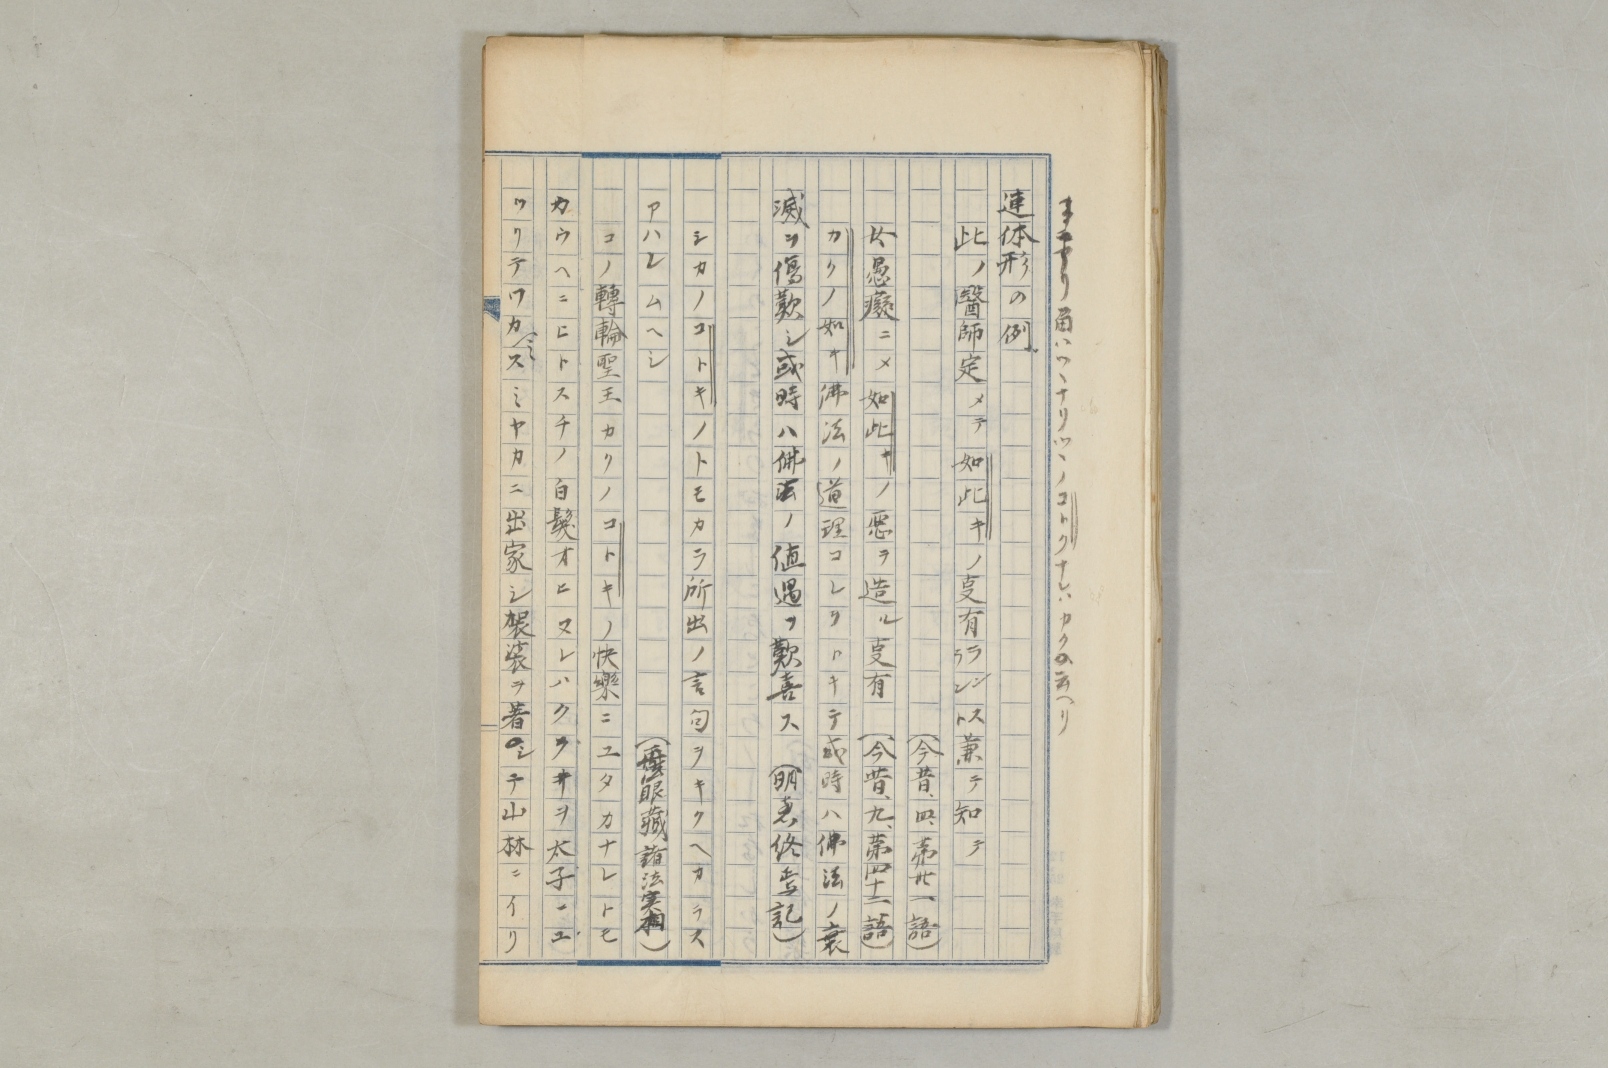 函ハツヽナリツヽノコトクナレハカクの云ヘリ
連体形の例、
此ノ醫師定メテ如此キノ㕝有ラランシトス兼テ知テ
(今昔、四、第卅一語)
女愚癡ニメ如此キノ悪ヲ造ル㕝有 (今昔、九、第四十一語)
カクノ如キ佛法ノ道理コレヲトキテ或時ハ佛法ノ衰
滅ヲ傷歎シ或時ハ佛法ノ値遇ヲ歎喜ス (明恵終焉記)
シカノコトキノトモカラ所出ノ言句ヲキクヘカラス
アハレムヘシ (眼藏 諸法実相)
コノ轉輪聖王カクノコトキノ快樂ニユタカナレトモ
カウヘニヒトスチノ白髮オヒヌレハクラヰヲ太子ニユ
ツリテワカミスミヤカニ出家シ袈裟ヲ著シテ山林ニイリ